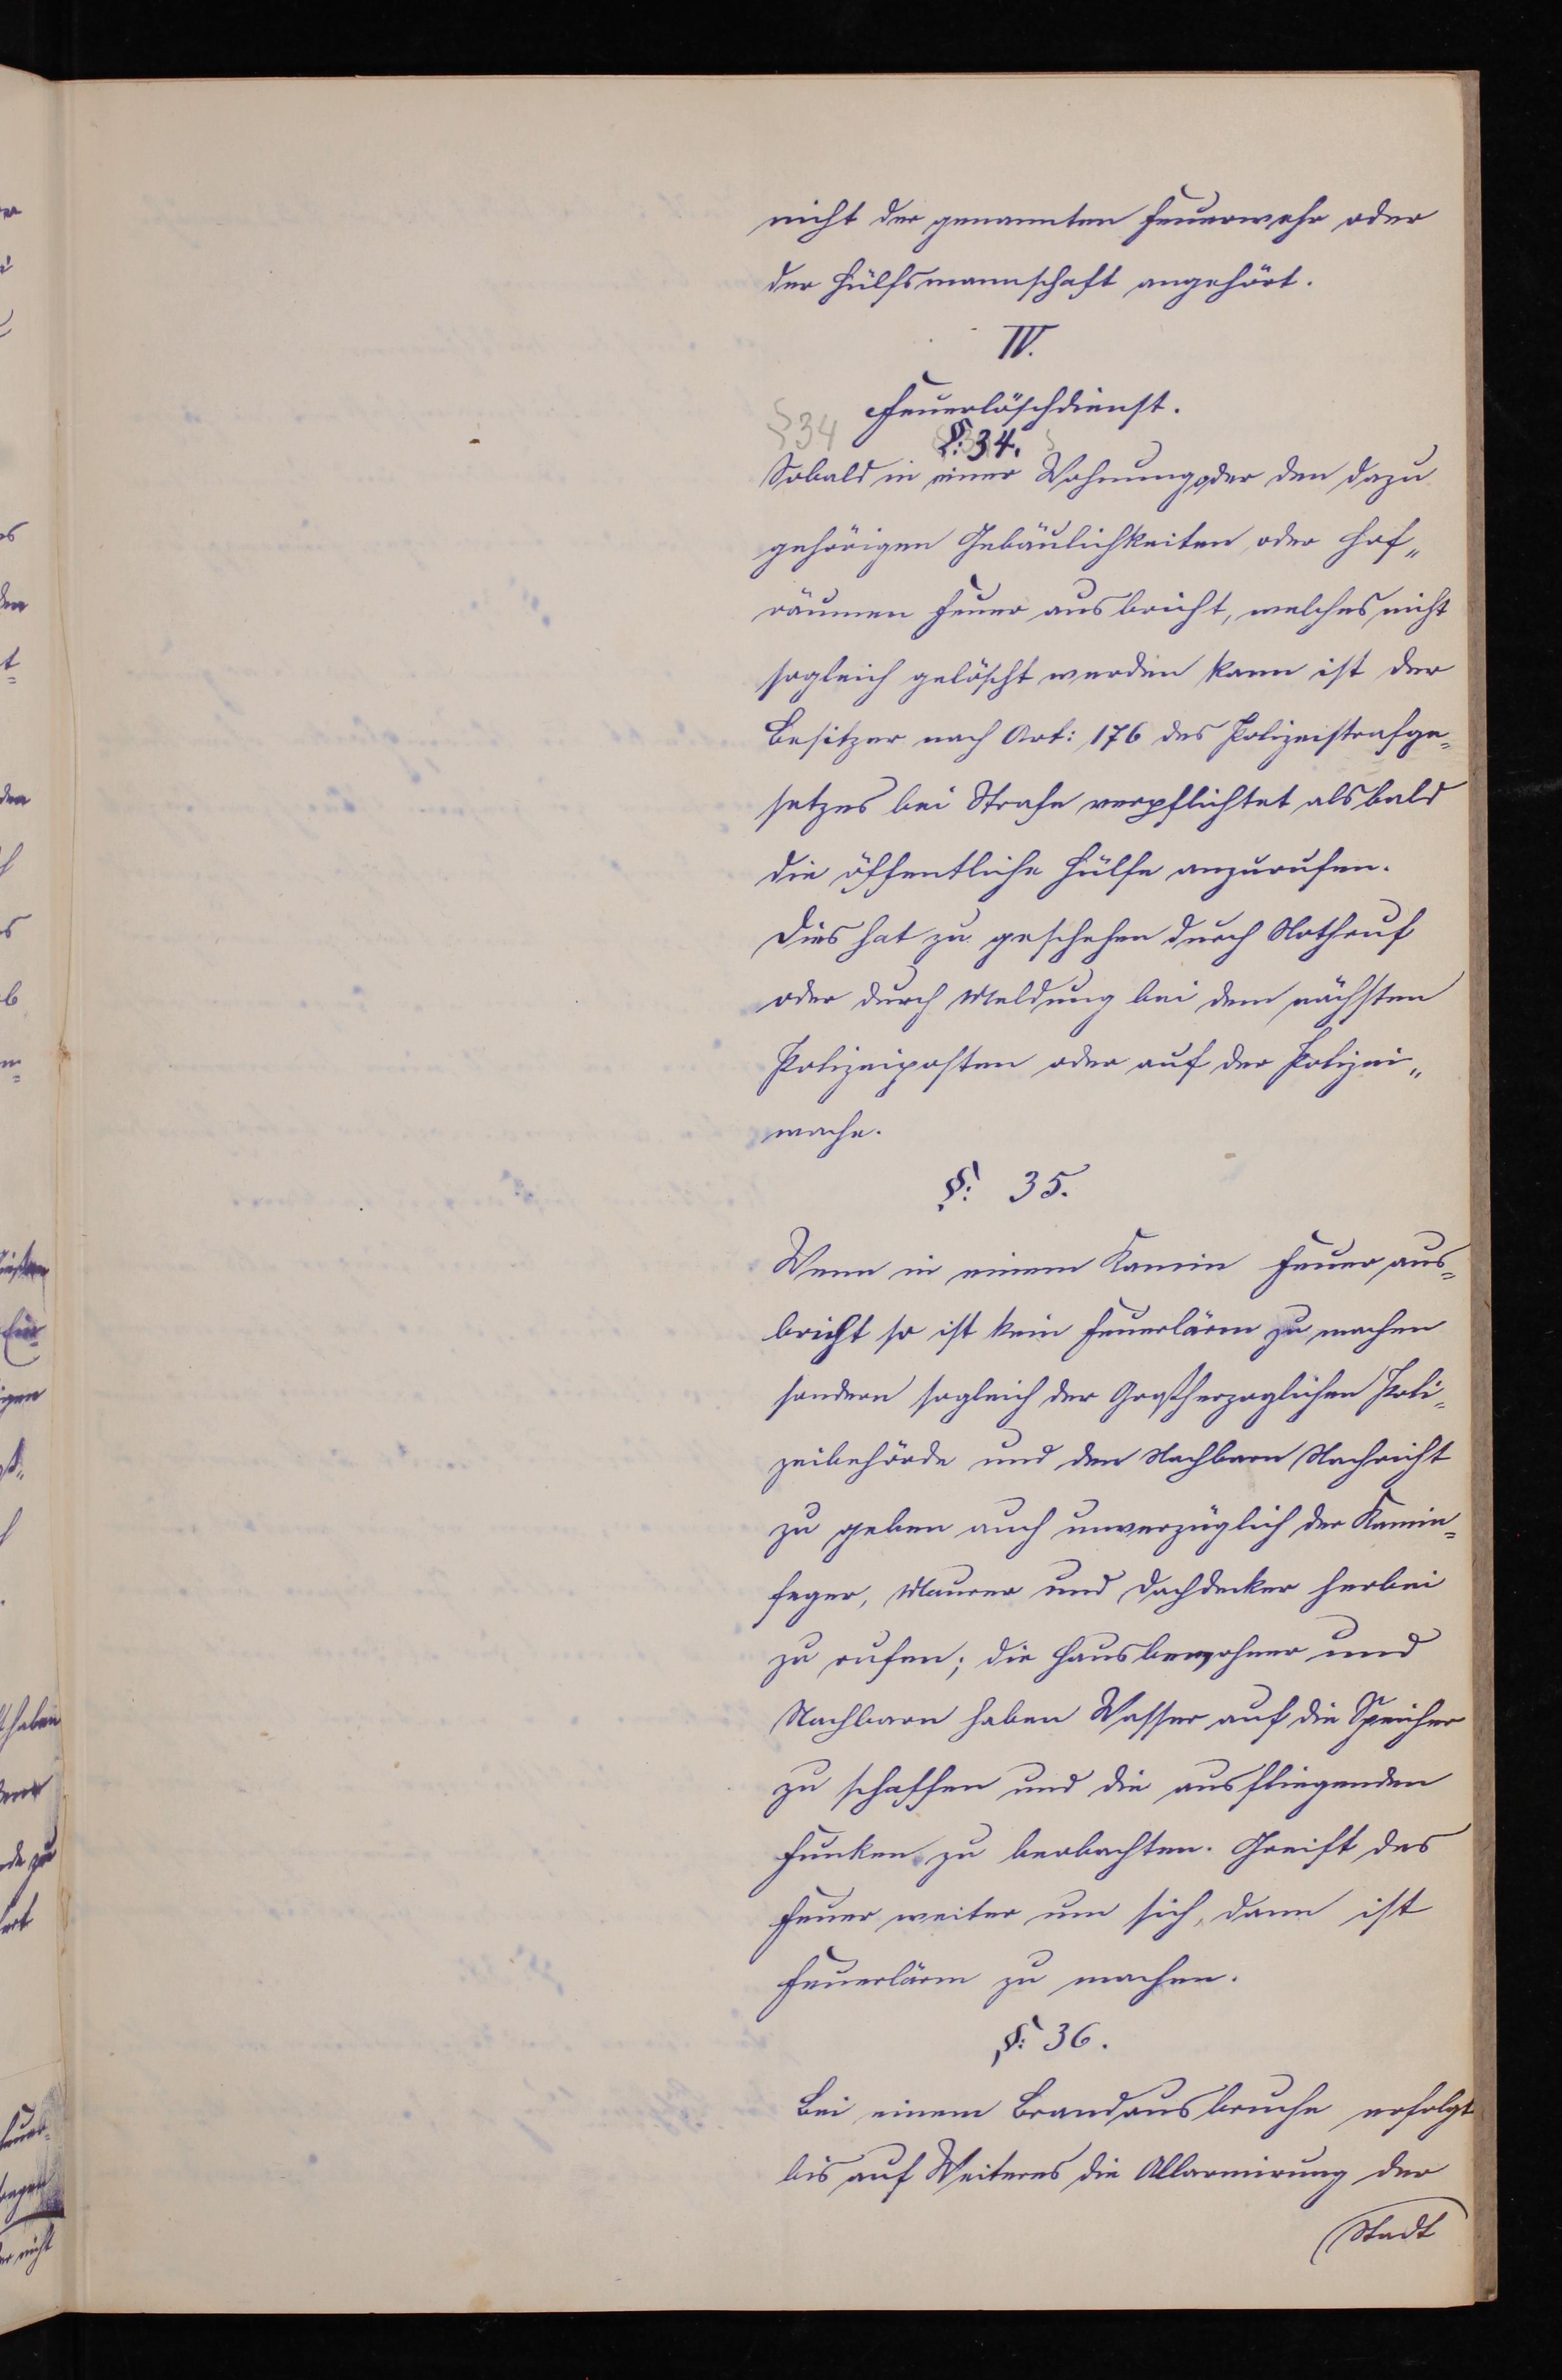 nicht der genannten Feuerwehr oder
der Hülfsmannschaft angehört.
IV.
Feuerlöschdienst.
§34
§: 34.
Sobald in einer Wohnung oder den dazu
gehörigen Gebäulichkeiten oder Hof„
räumen Feuer ausbricht, welches nicht
sogleich gelöscht werden kann ist der
Besitzer nach Art: 176 des Polizeistrafge=
setzes bei Strafe verpflichtet alsbald
die öffentliche Hülfe anzurufen.
Dies hat zu geschehen durch Nothruf
oder durch Meldung bei dem nächsten
Polizeiposten oder auf der Polizei„
wache.
§: 35.
Wenn in einem Kamin Feuer aus=
bricht so ist kein Feuerlärm zu machen
sondern sogleich der Großherzoglichen Poli=
zeibehörde und den Nachbarn Nachricht
zu geben auch unverzüglich der Kamin=
feger, Maurer und Dachdecker herbei
zu rufen; die Hausbewohner und
Nachbarn haben Wasser auf die Speicher
zu schaffen und die ausfliegenden
Funken zu beobachten. Greift das
Feuer weiter um sich, dann ist
Feuerlärm zu machen.
§: 36.
Bei einem Brandausbruche erfolgt
bis auf Weiteres die Allarmirung der
Stadt